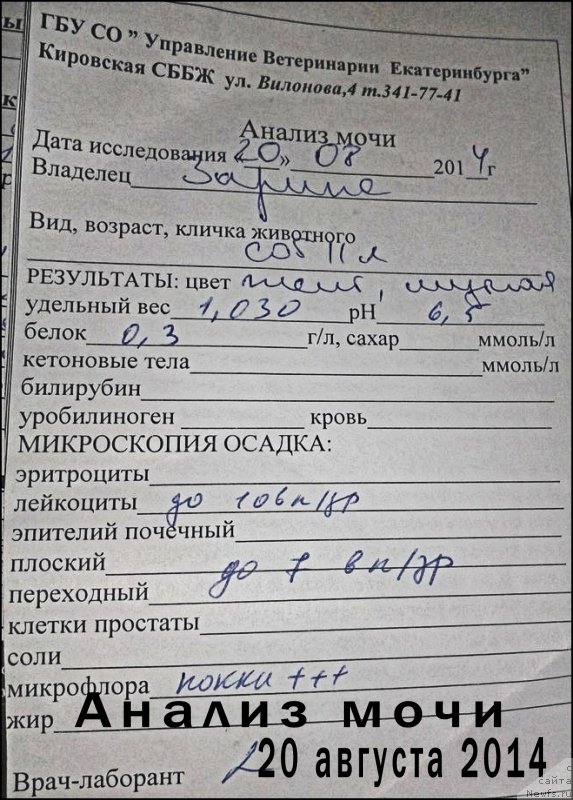 ГБУ СО " Управление Ветеринарии Екатеринбурга"
Кировская СББЖ ул. Вилонова,4 т.341-77-41
Анализ мочи
Дата исследования «20» 08 2014г
Владелец
Вид, возраст, кличка животного
соб 11 л
РЕЗУЛЬТАТЫ: цвет желт, мутная
удельный вес 1,030 pH 6,5
белок 0,3 г/л, сахар ммоль/л
кетоновые тела ммоль/л
билирубин
уробилиноген кровь
МИКРОСКОПИЯ ОСАДКА:
эритроциты
лейкоциты до 10 в п/зр
эпителий почечный
плоский
переходный до 7 в п/зр
клетки простаты
соли
микрофлора кокки +++
жир
Анализ мочи
20 августа 2014
Врач-лаборант
с
сайта
Newfs.ru